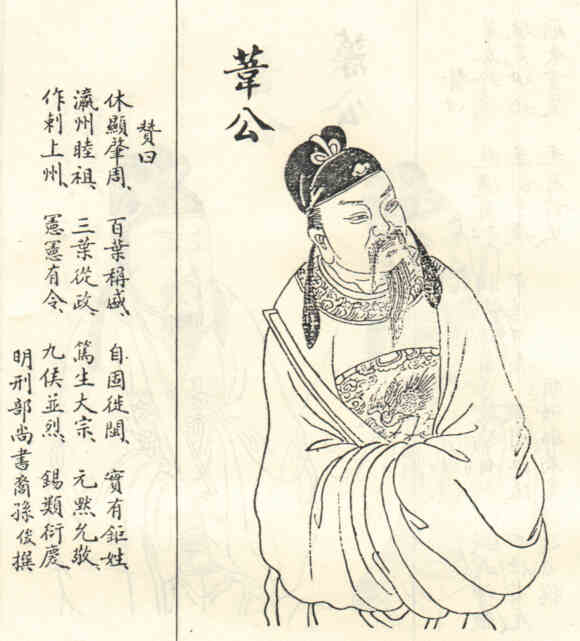 葦公
賛曰
休顯肇周、百葉稱盛、自固徙閩、實有鉅姓、
瀛州睦祖、三葉從政、篤生大宗、元黙允敬、
作刺上州、憲憲有令、九侯並烈、錫類衍慶、
明刑部尚書裔孫俊撰